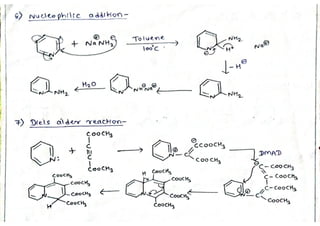 6) Nucleophilic addition-
N + Na NH2 Toluene 100°C N NH2 H+ Na⊕
↓-H⊖
N NH2 H2O N NH Na⊕ N NH2
7) Diels alder reaction-
COOCH3
C
N: + ||| → N - C CCOOCH3 COOCH3 DMAD
C
COOCH3
C-COOCH3
C-COOCH3
C-COOCH3
COOCH3
COOCH3 COOCH3 COOCH3 COOCH3
H COOCH3 COOCH3 COOCH3 COOCH3